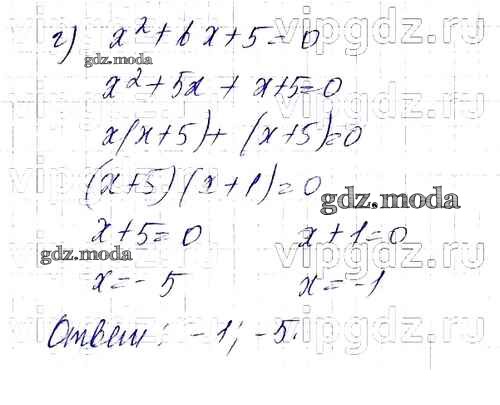 г) x² + 6x + 5 = 0
gdz.moda
x² + 5x + x + 5 = 0
x(x + 5) + (x + 5) = 0
(x + 5) (x + 1) = 0
gdz.moda
x + 5 = 0 x + 1 = 0
gdz.moda
x = - 5 x = -1
Ответ: -1; -5.
vipgdz.ru
vipgdz.ru
vipgdz.ru
vipgdz.ru